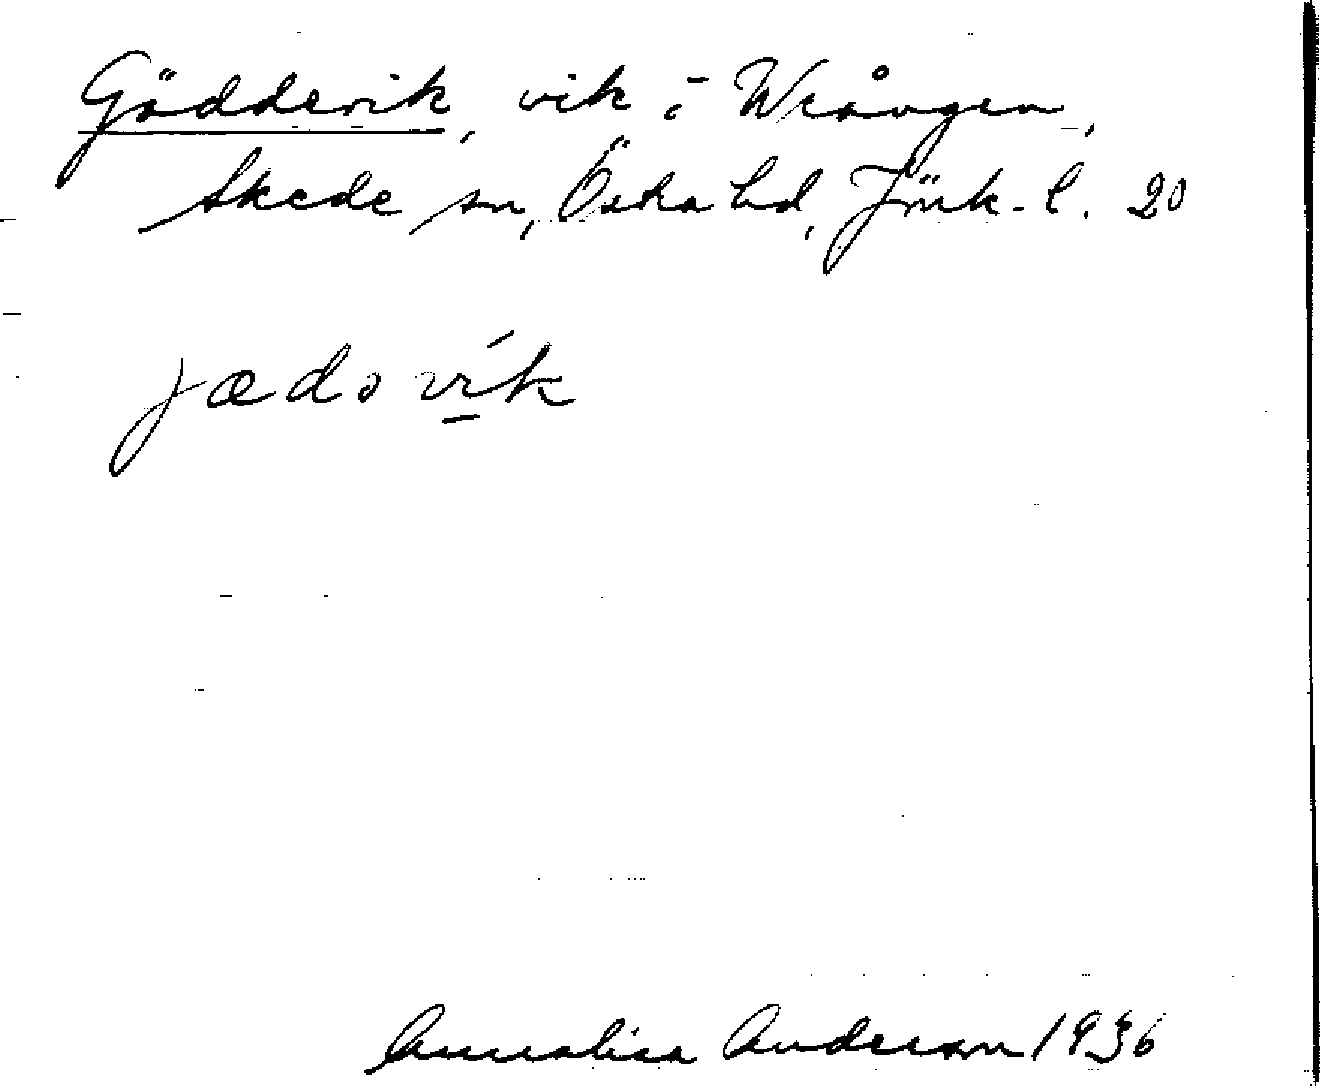 Gödderik, vik i Wrången,
Skede sn, Östra hd, Jönk. l. 20
jædəvik
Annalisa Anderson 1936